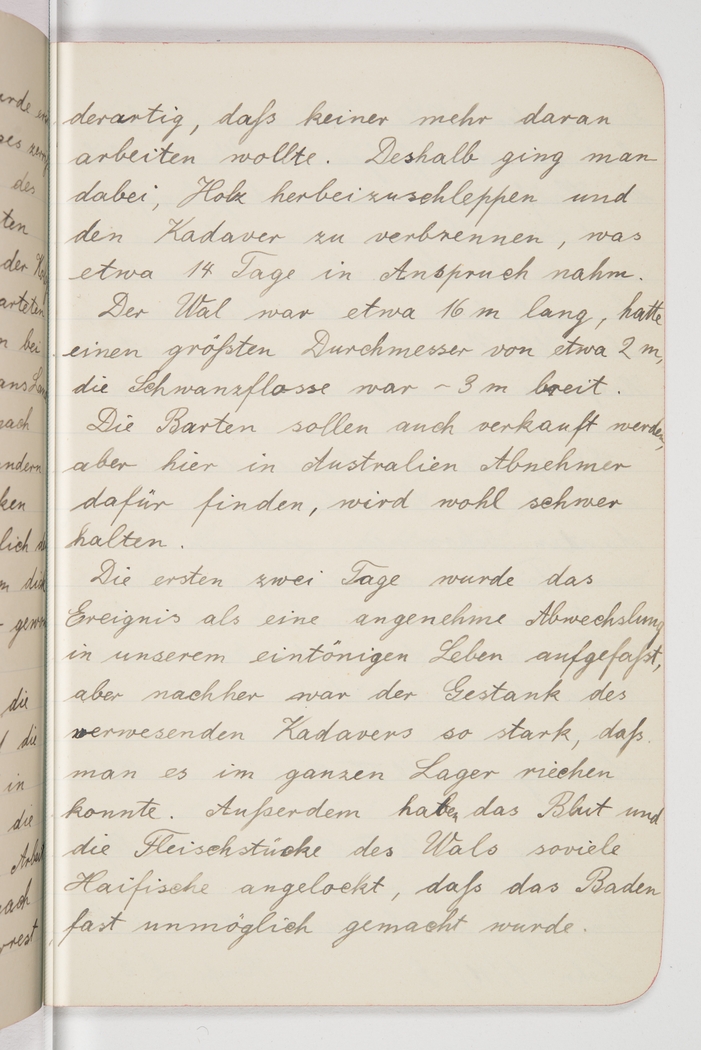 derartig, daß keiner mehr daran
arbeiten wollte. Deshalb ging man
dabei, Holz herbeizuschleppen und
den Kadaver zu verbrennen, was
etwa 14 Tage in Anspruch nahm.
Der Wal war etwa 16 m lang, hatte
einen größten Durchmesser von etwa 2 m,
die Schwanzflosse war ~ 3 m breit.
Die Barten sollen auch verkauft werden,
aber hier in Australien Abnehmer
dafür finden, wird wohl schwer
halten.
Die ersten zwei Tage wurde das
Ereignis als eine angenehme Abwechslung
in unserem eintönigen Leben aufgefaßt,
aber nachher war der Gestank des
verwesenden Kadavers so stark, daß
man es im ganzen Lager riechen
konnte. Außerdem haben das Blut und
die Fleischstücke des Wals soviele
Haifische angelockt, daß das Baden
fast unmöglich gemacht wurde.